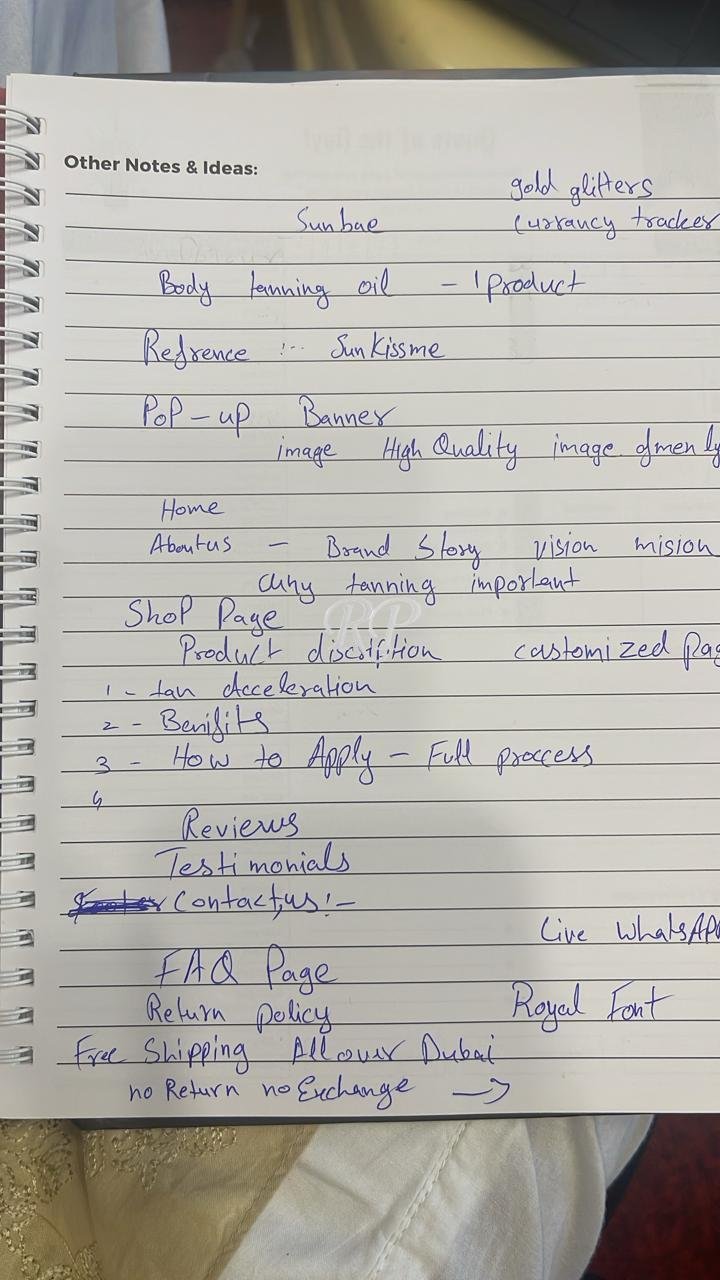 Other Notes & Ideas:
gold glitters
Sunbae currancy tracker
Body tanning oil - 1 product
Refrence :-- Sunkissme
Pop-up Banner
image High Quality image
Home
Aboutus - Brand Story vision mision
why tanning important
Shop Page
RP
Product discription castomized Pag
1 - tan Acceleration
2 - Benifits
3 - How to Apply - Full proccess
4
Reviews
Testimonials
Contact us :-
Live WhatsAPP
FAQ Page
Return policy Royal Font
Free Shipping All over Dubai
no Return no Exchange →